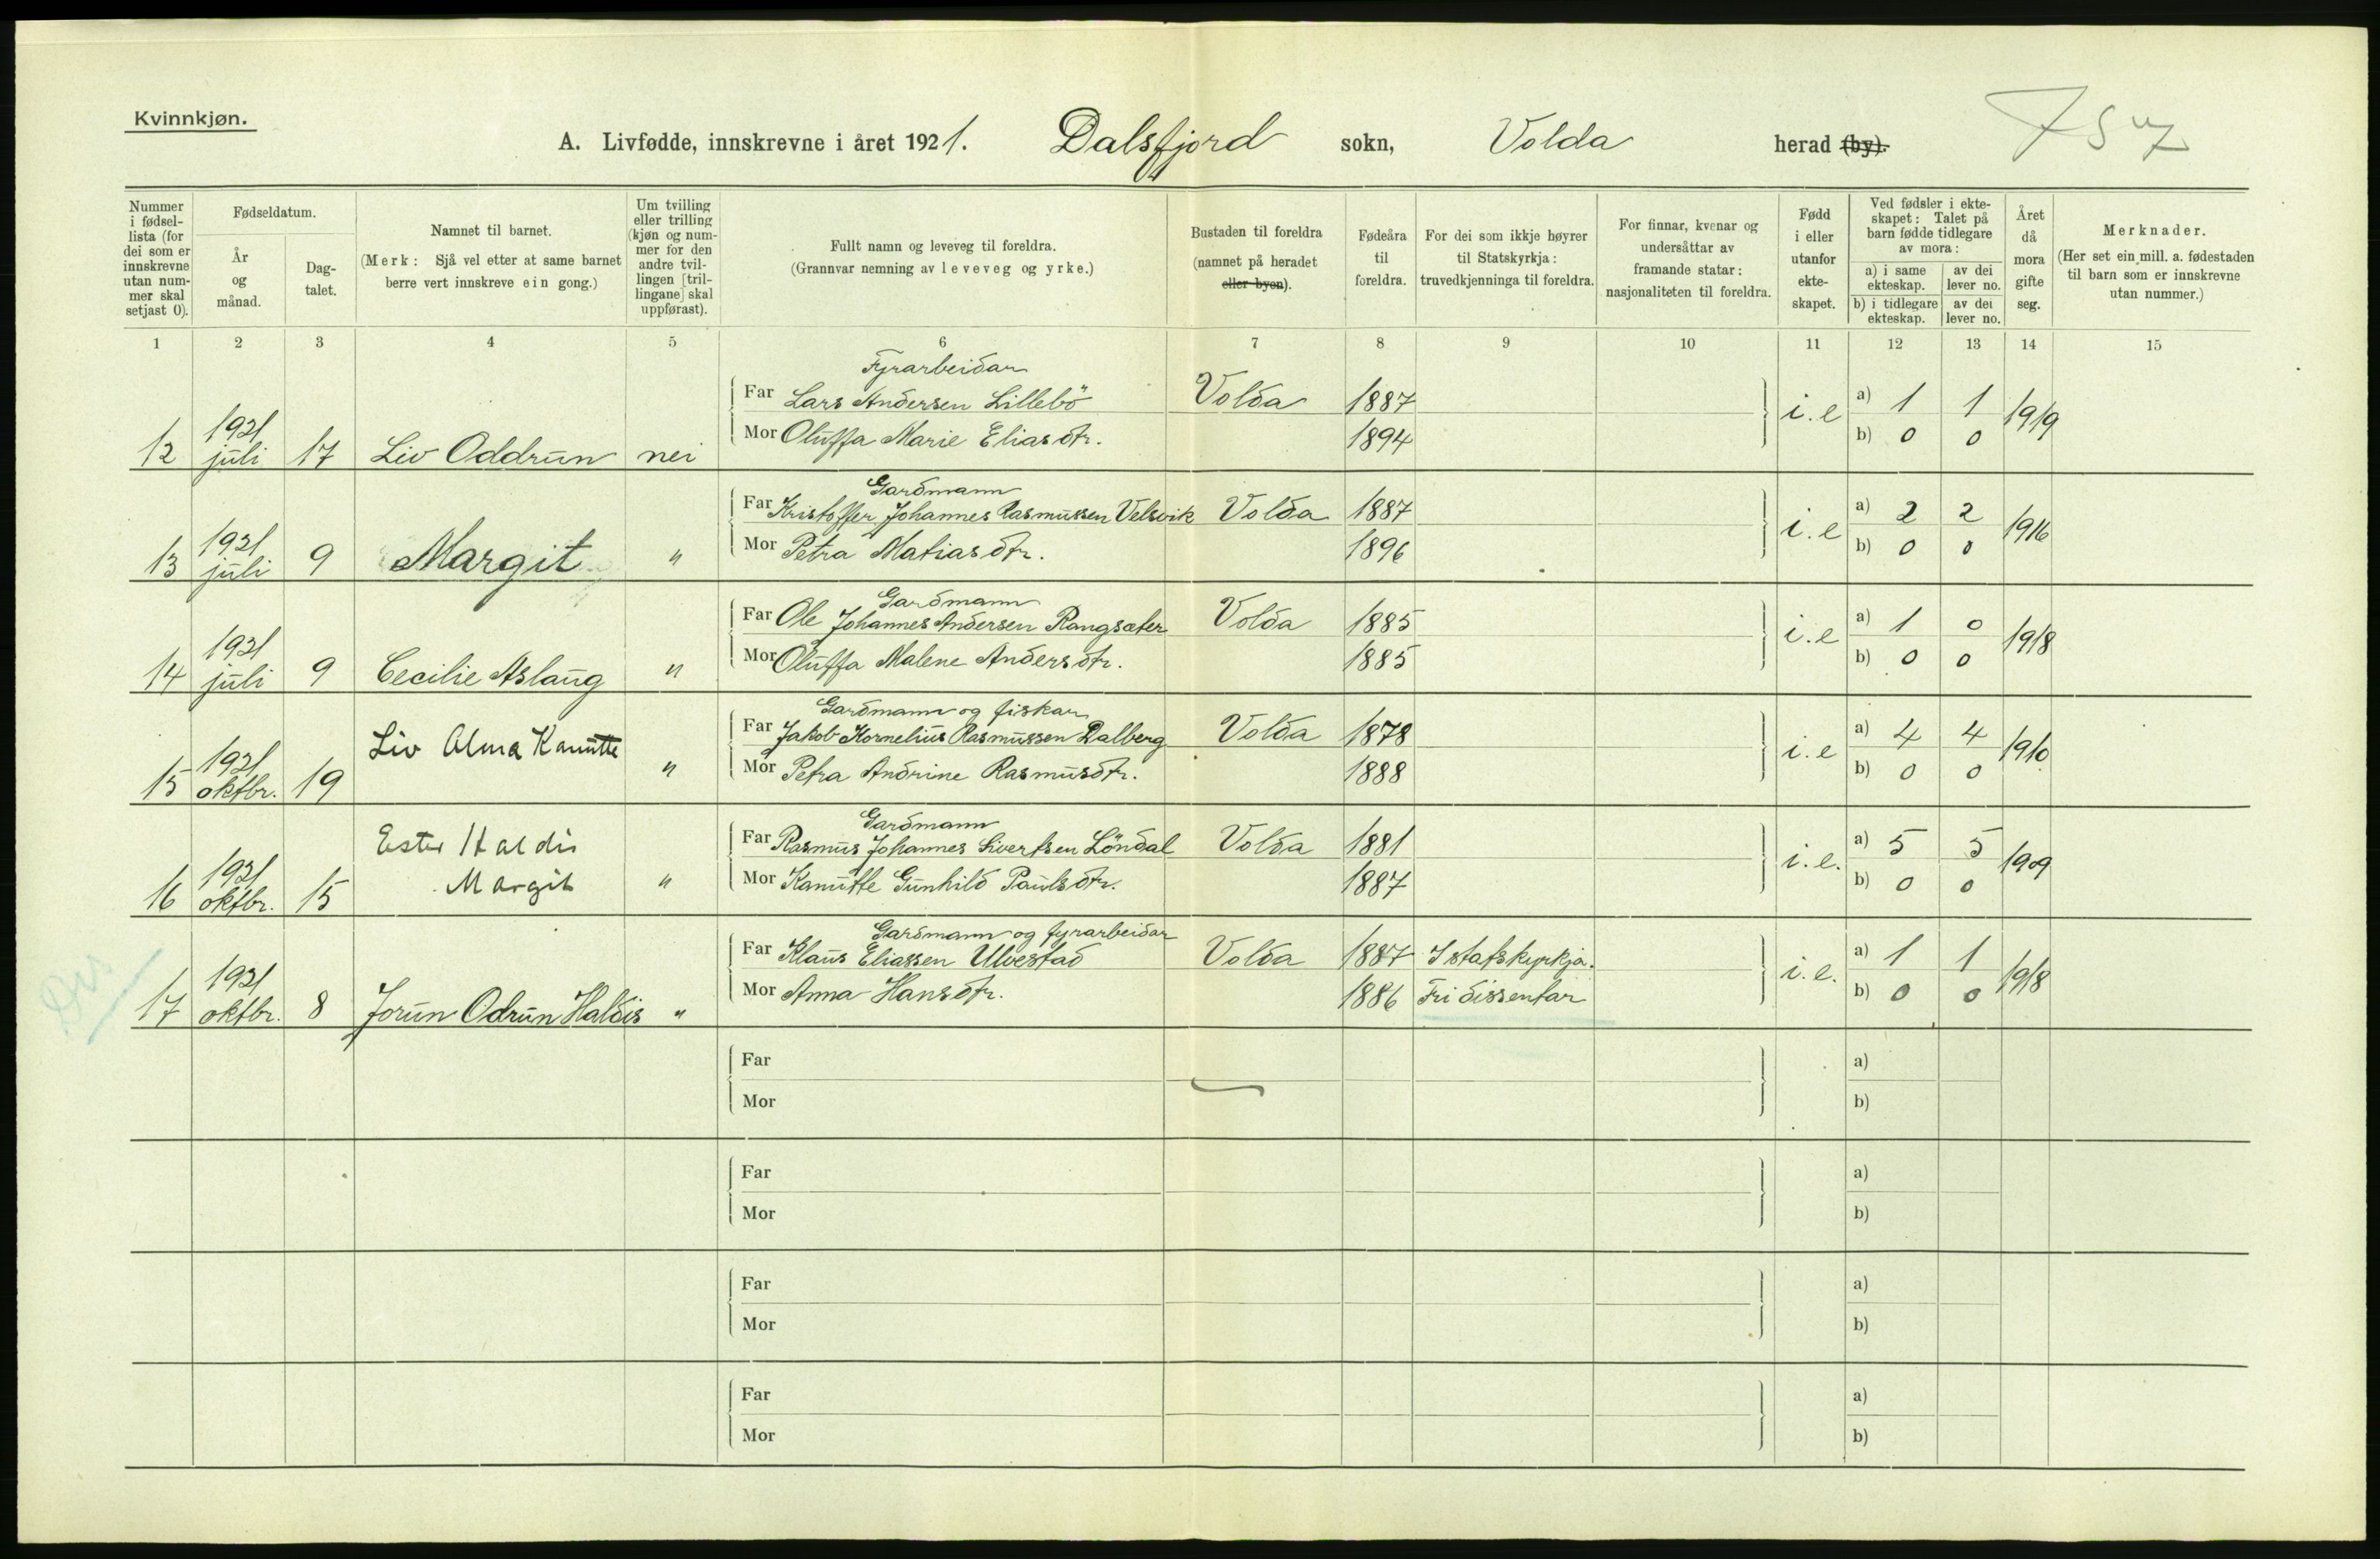 Kvinnkjøn.
A. Livfødde, innskrevne i året 1921. Dalsfjord sokn, Volda herad (by).
Nummer i fødsel-lista (for dei som er innskrevne utan num-mer skal setjast 0).
Fødseldatum.
År og månad.
Dag-talet.
Namnet til barnet.
(Merk: Sjå vel etter at same barnet berre vert innskreve ein gong.)
Um tvilling eller trilling (kjøn og num-mer for den andre tvil-lingen [tril-lingane] skal uppførast).
Fullt namn og leveveg til foreldra.
(Grannvar nemning av leveveg og yrke.)
Bustaden til foreldra (namnet på heradet eller byen).
Fødeåra til foreldra.
For dei som ikkje høyrer til Statskyrkja: truvedkjenninga til foreldra.
For finnar, kvenar og undersåttar av framande statar: nasjonaliteten til foreldra.
Fødd i eller utanfor ekte-skapet.
Ved fødsler i ekte-skapet: Talet på barn fødde tidlegare av mora:
a) i same ekteskap. av dei lever no.
b) i tidlegare ekteskap. av dei lever no.
Året då mora gifte seg.
Merknader.
(Her set ein mill. a. fødestaden til barn som er innskrevne utan nummer.)
1 2 3 4 5 6 7 8 9 10 11 12 13 14 15
Fyrarbeidar
Far Lars Andersen Lillebö Volda 1887 i.e a) 1 1 1919
Mor Oluffa Marie Eliasdtr. 1894 b) 0 0
12 1921 juli 17 Liv Oddrun nei
Gardmann
Far Kristoffer Johannes Rasmussen Velsvik Volda 1887 i.e a) 2 2 1916
Mor Petra Matiasdtr. 1896 b) 0 0
13 1921 juli 9 Margit "
Gardmann
Far Ole Johannes Andersen Rangsæter Volda 1885 i.e a) 1 0 1918
Mor Oluffa Malene Andersdtr. 1885 b) 0 0
14 1921 juli 9 Cecilie Aslaug "
Gardmann og fiskar
Far Jakob Kornelius Rasmussen Dalberg Volda 1878 i.e a) 4 4 1910
Mor Petra Andrine Rasmusdtr. 1888 b) 0 0
15 1921 oktbr. 19 Liv Alma Kanutte "
Gardmann
Far Rasmus Johannes Sivertsen Löndal Volda 1881 i.e. a) 5 5 1909
Mor Kanutte Gunhild Paulsdtr. 1887 b) 0 0
16 1921 oktbr. 15 Ester Haldis Margit "
Gardmann og fyrarbeidar
Far Klaus Eliassen Ulvestad Volda 1887 I statskyrkja. i.e. a) 1 1 1918
Mor Anna Hansdtr. 1886 Fri dissentar b) 0 0
17 1921 oktbr. 8 Jorun Odrun Haldis "
Far a)
Mor b)
Far a)
Mor b)
Far a)
Mor b)
Far a)
Mor b)